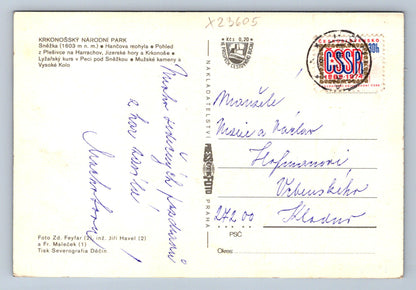 X23605
KRKONOŠSKÝ NÁRODNÍ PARK
Sněžka (1603 m n. m.) ● Hančova mohyla ● Pohled
z Plešnice na Harrachov, Jizerské hory a Krkonoše ●
Lyžařský kurs v Peci pod Sněžkou ● Mužské kameny a
Vysoké Kolo
Mnoho srdečných pozdravů
a har zasílá
Kčs 0,70
NAKLADATELSTVÍ
PRESSFOTO
PRAHA
ČESKOSLOVENSKO
30h
ČSSR
Manželé
Marie a Václav
Hofmanovi
Vrbenského
272 00 Kladno
PSČ
Okres:
Foto Zd. Feyfar (2), inž. Jiří Havel (2)
a Fr. Maleček (1)
Tisk Severografia Děčín